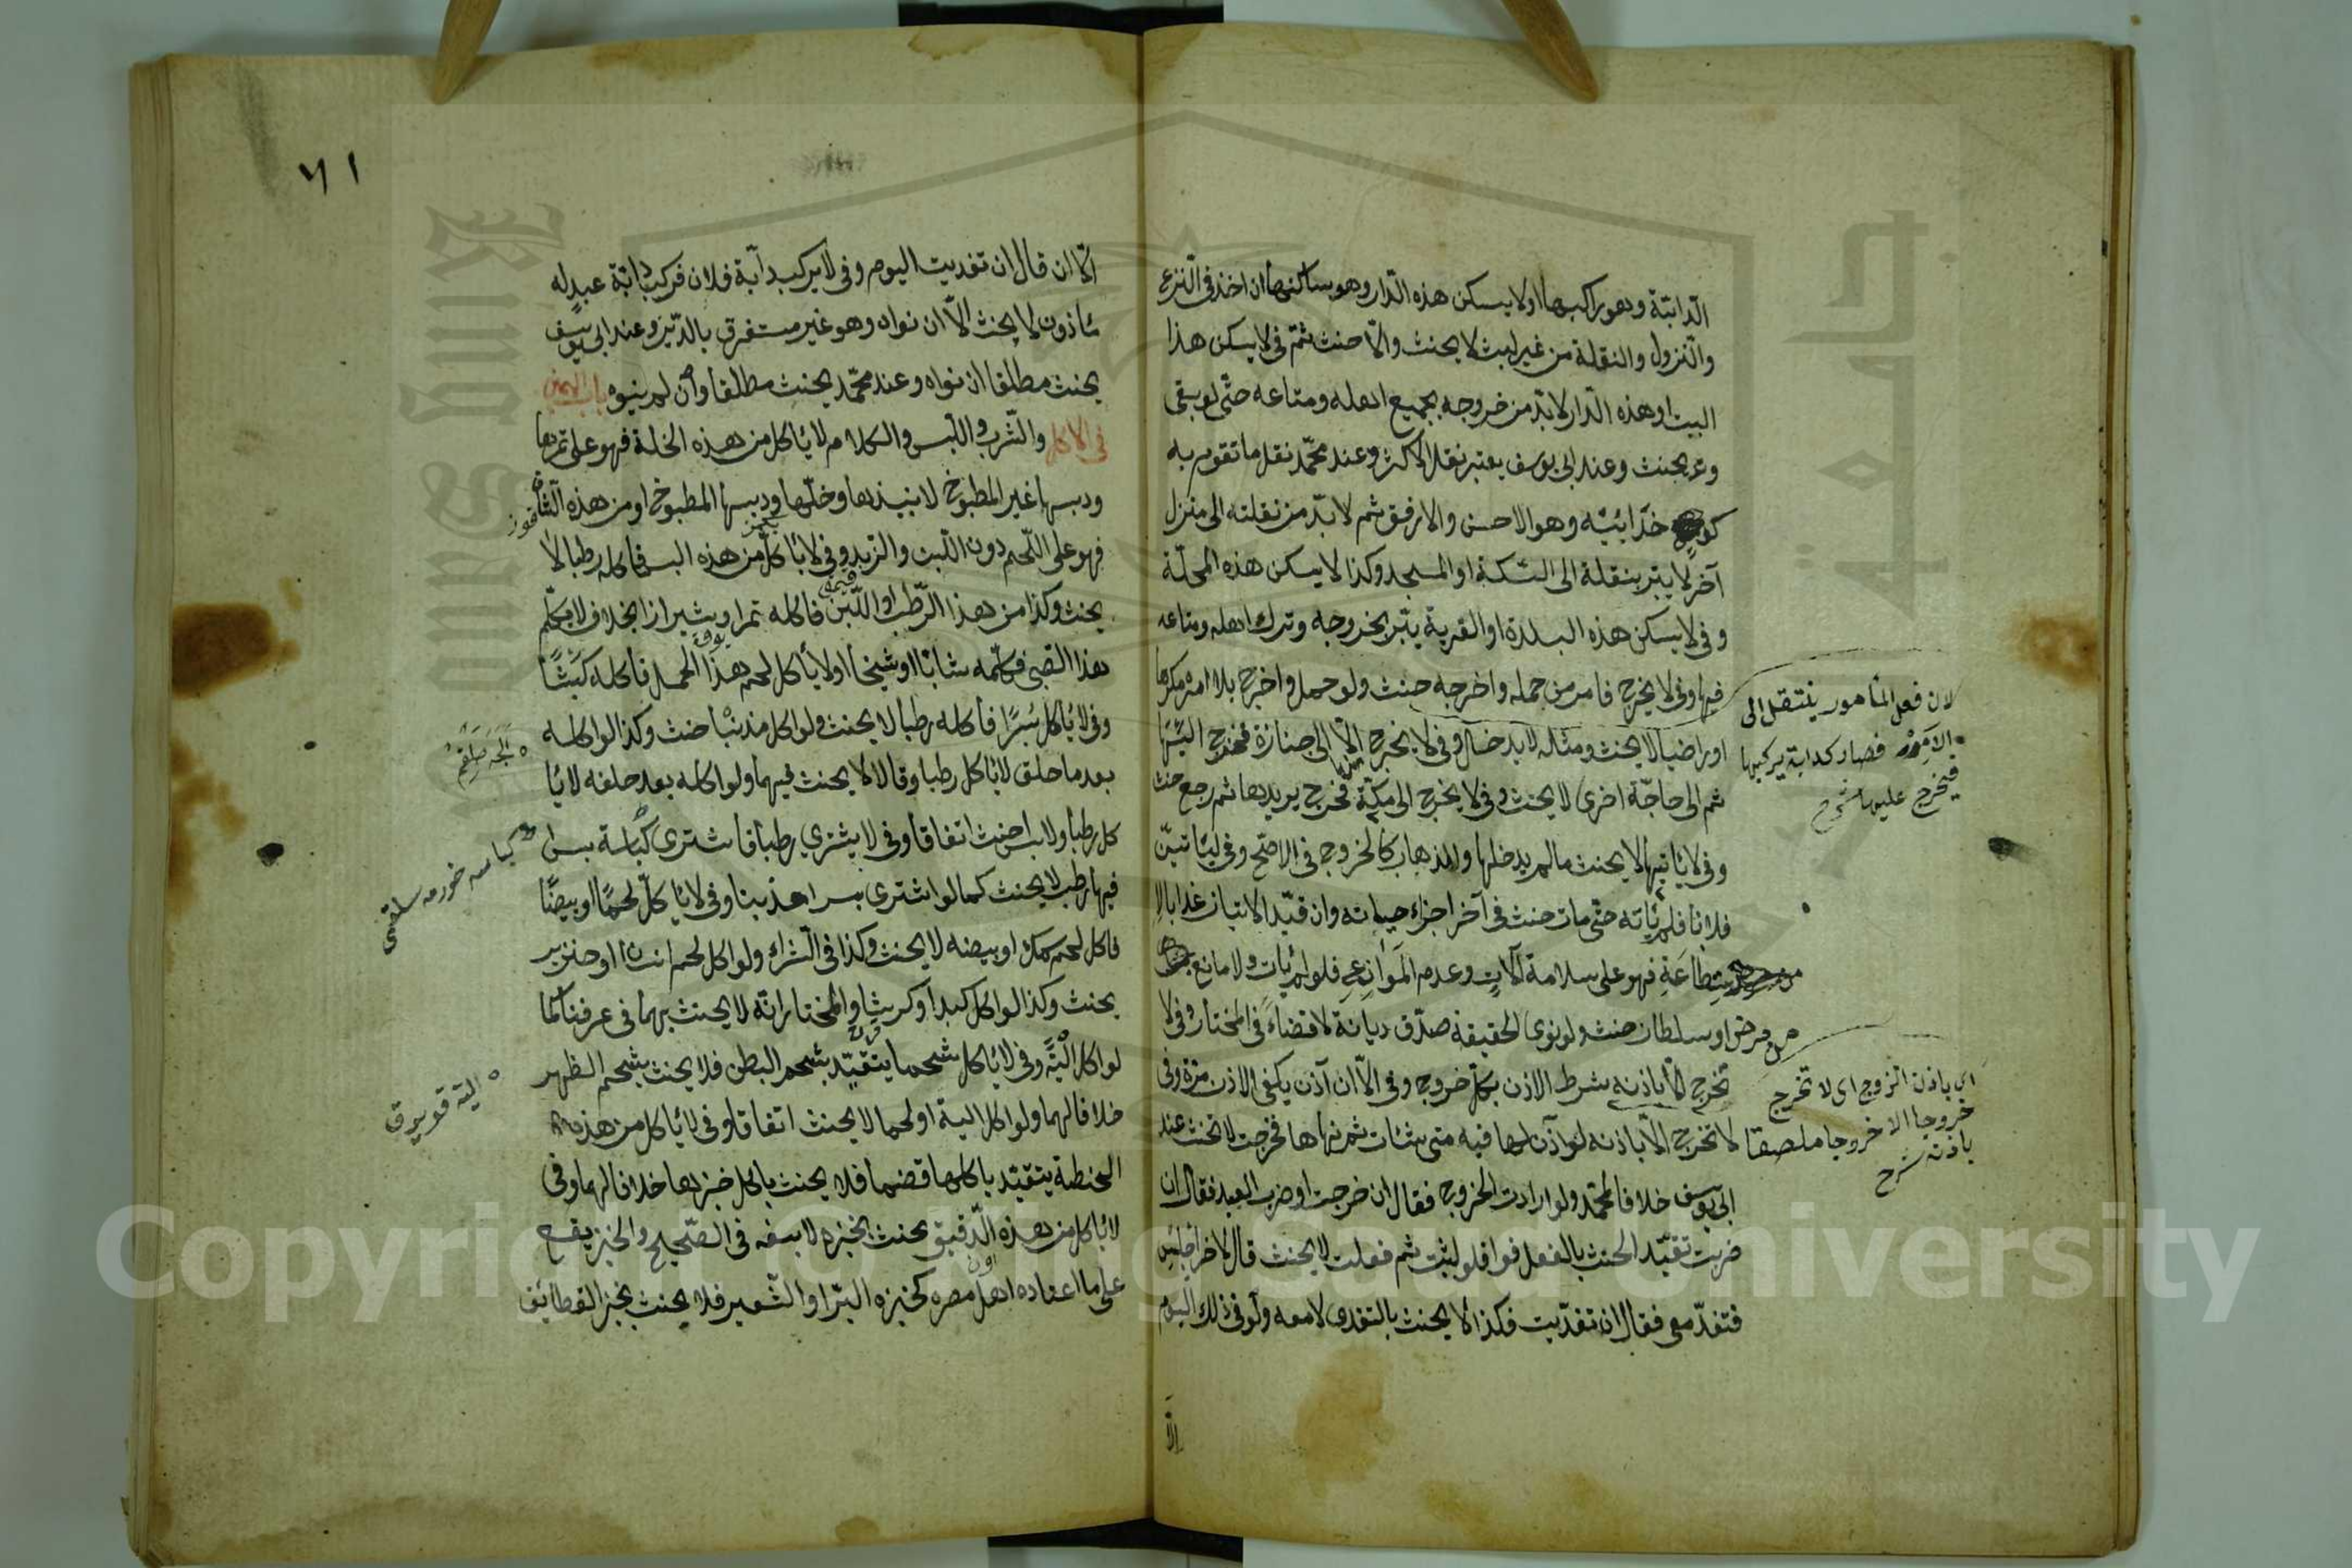 الدابة وهو راكبها اولا يسكن هذه الدار وهو ساكنها ان اخذ في النزع
والنزول والنقلة من غير لبث لا يحنث والا حنث ثم في لا يسكن هذا
البيت او هذه الدار لا بد من خروجه بجميع اهله ومتاعه حتى لو بقى
وتد يحنث وعند ابى يوسف يعتبر نقل الاكثر وعند محمد نقل ما تقوم به
كد خدائيته وهو الاحسن والارفق ثم لا بد من نقلته الى منزل
آخر لا يبر بنقلة الى السكة او المسجد وكذا لا يسكن هذه المحلة
وفى لا يسكن هذه البلدة او القرية يبر بخروجه وترك اهله ومتاعه
فيها وفى لا يخرج فامر من حمله واخرجه حنث ولو حمل واخرج بلا امره مكرها
او راضيا لا يحنث ومثله لا يدخل وفى لا يخرج الا الى جنازة فخرج اليها
ثم الى حاجة اخرى لا يحنث وفى لا يخرج الى مكة فخرج يريدها ثم رجع حنث
وفى لا يأتيها لا يحنث ما لم يدخلها والذهاب كالخروج فى الاصح وفى ليأتين
فلانا فلم يأته حتى مات حنث فى آخر اجزاء حياته وان قيد الاتيان غدا بالا
ستطاعة فهو على سلامة آلات وعدم الموانع فلو لم يأت ولا مانع
من مرض او سلطان حنث ولو نوى الحقيقة صدق ديانة لا قضاء فى المختار وفى لا
تخرج الا باذنه شرط الاذن بكل خروج وفى الا ان آذن يكفى الاذن مرة وفى
لا تخرج الا باذنه لو آذن لها فيه متى شئت ثم نهاها فخرجت لا تحنث عند
ابى يوسف خلافا لمحمد ولو ارادت الخروج فقال ان خرجت او ضرب العبد فقال ان
ضربت تقيد الحنث بالفعل فورا فلو لبث ثم فعلت لا يحنث قال لآخر اجلس
فتغد معى فقال ان تغديت فكذا لا يحنث بالتغدى لا معه ولو فى ذلك اليوم
الا
لان فعل المأمور ينتقل الى
الآمر فصار كدابة يركبها
فيخرج عليها شرح
اى باذن الزوج اى لا تخرج
خروجا الا خروجا ملصقا
باذنه شرح
٧١
الا ان قال ان تغديت اليوم وفى لا يركب دابة فلان فركب دابة عبد له
مأذون لا يحنث الا ان نواه وهو غير مستغرق بالدين وعند ابى يوسف
يحنث مطلقا ان نواه وعند محمد يحنث مطلقا وان لم ينوه باب اليمين
فى الاكل والشرب واللبس والكلام لا يأكل من هذه النخلة فهو على تمرها
ودبسها غير المطبوخ لا نبيذها وخلها ودبسها المطبوخ او من هذه الشاة
فهو على اللحم دون اللبن والزبد وفى لا يأكل من هذه البسر فأكله رطبا لا
يحنث وكذا من هذا الرطب او اللبن فأكله تمرا وشيرازا بخلاف لا يكلم
هذا الصبى فكلمه شابا او شيخا اولا يأكل لحم هذا الحمل فأكله كبشا
وفى لا يأكل بسرا فأكله رطبا لا يحنث ولو اكل مذنبا حنث وكذا لو اكله
بعد ما حلف لا يأكل رطبا وقالا لا يحنث فيهما ولو اكله بعد حلفه لا يأ
كل رطبا ولا بسرا حنث اتفاقا وفى لا يشترى رطبا فاشترى كباسة بسر
فيها رطب لا يحنث كما لو اشترى بسرا مذنبا وفى لا يأكل لحما او بيضا
فأكل لحم سمك او بيضه لا يحنث وكذا فى الشراء ولو اكل لحم انسان او خنزير
يحنث وكذا لو اكل كبدا او كرشا والمختار انه لا يحنث بهما فى عرفنا كما
لو اكل الية وفى لا يأكل شحما يتقيد بشحم البطن فلا يحنث بشحم الظهر
خلافا لهما ولو اكل الية او لحما لا يحنث اتفاقا وفى لا يأكل من هذه
الحنطة يتقيد باكلها قضما فلا يحنث باكل خبزها خلافا لهما وفى
لا يأكل من هذه الدقيق يحنث بخبزه لا بسفه فى الصحيح والخبز يقع
على ما اعتاده اهل مصره كخبزه البر او الشعير فلا يحنث بخبز القطائف
كباسه خورمه سلقمى
اليه قويروق
Copyright © King Saud University